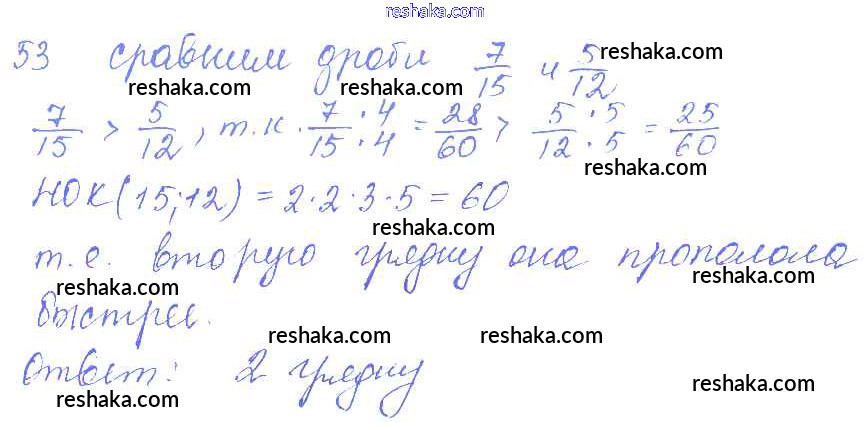 reshaka.com
53 сравним дроби 7/15 и 5/12 reshaka.com
reshaka.com reshaka.com
7/15 > 5/12, т.к. 7·4/15·4 = 28/60 > 5·5/12·5 = 25/60
reshaka.com
НОК(15;12) = 2·2·3·5 = 60
reshaka.com
т.е. вторую грядку она прополола
reshaka.com reshaka.com
быстрее.
reshaka.com reshaka.com
Ответ: 2 грядку
reshaka.com reshaka.com